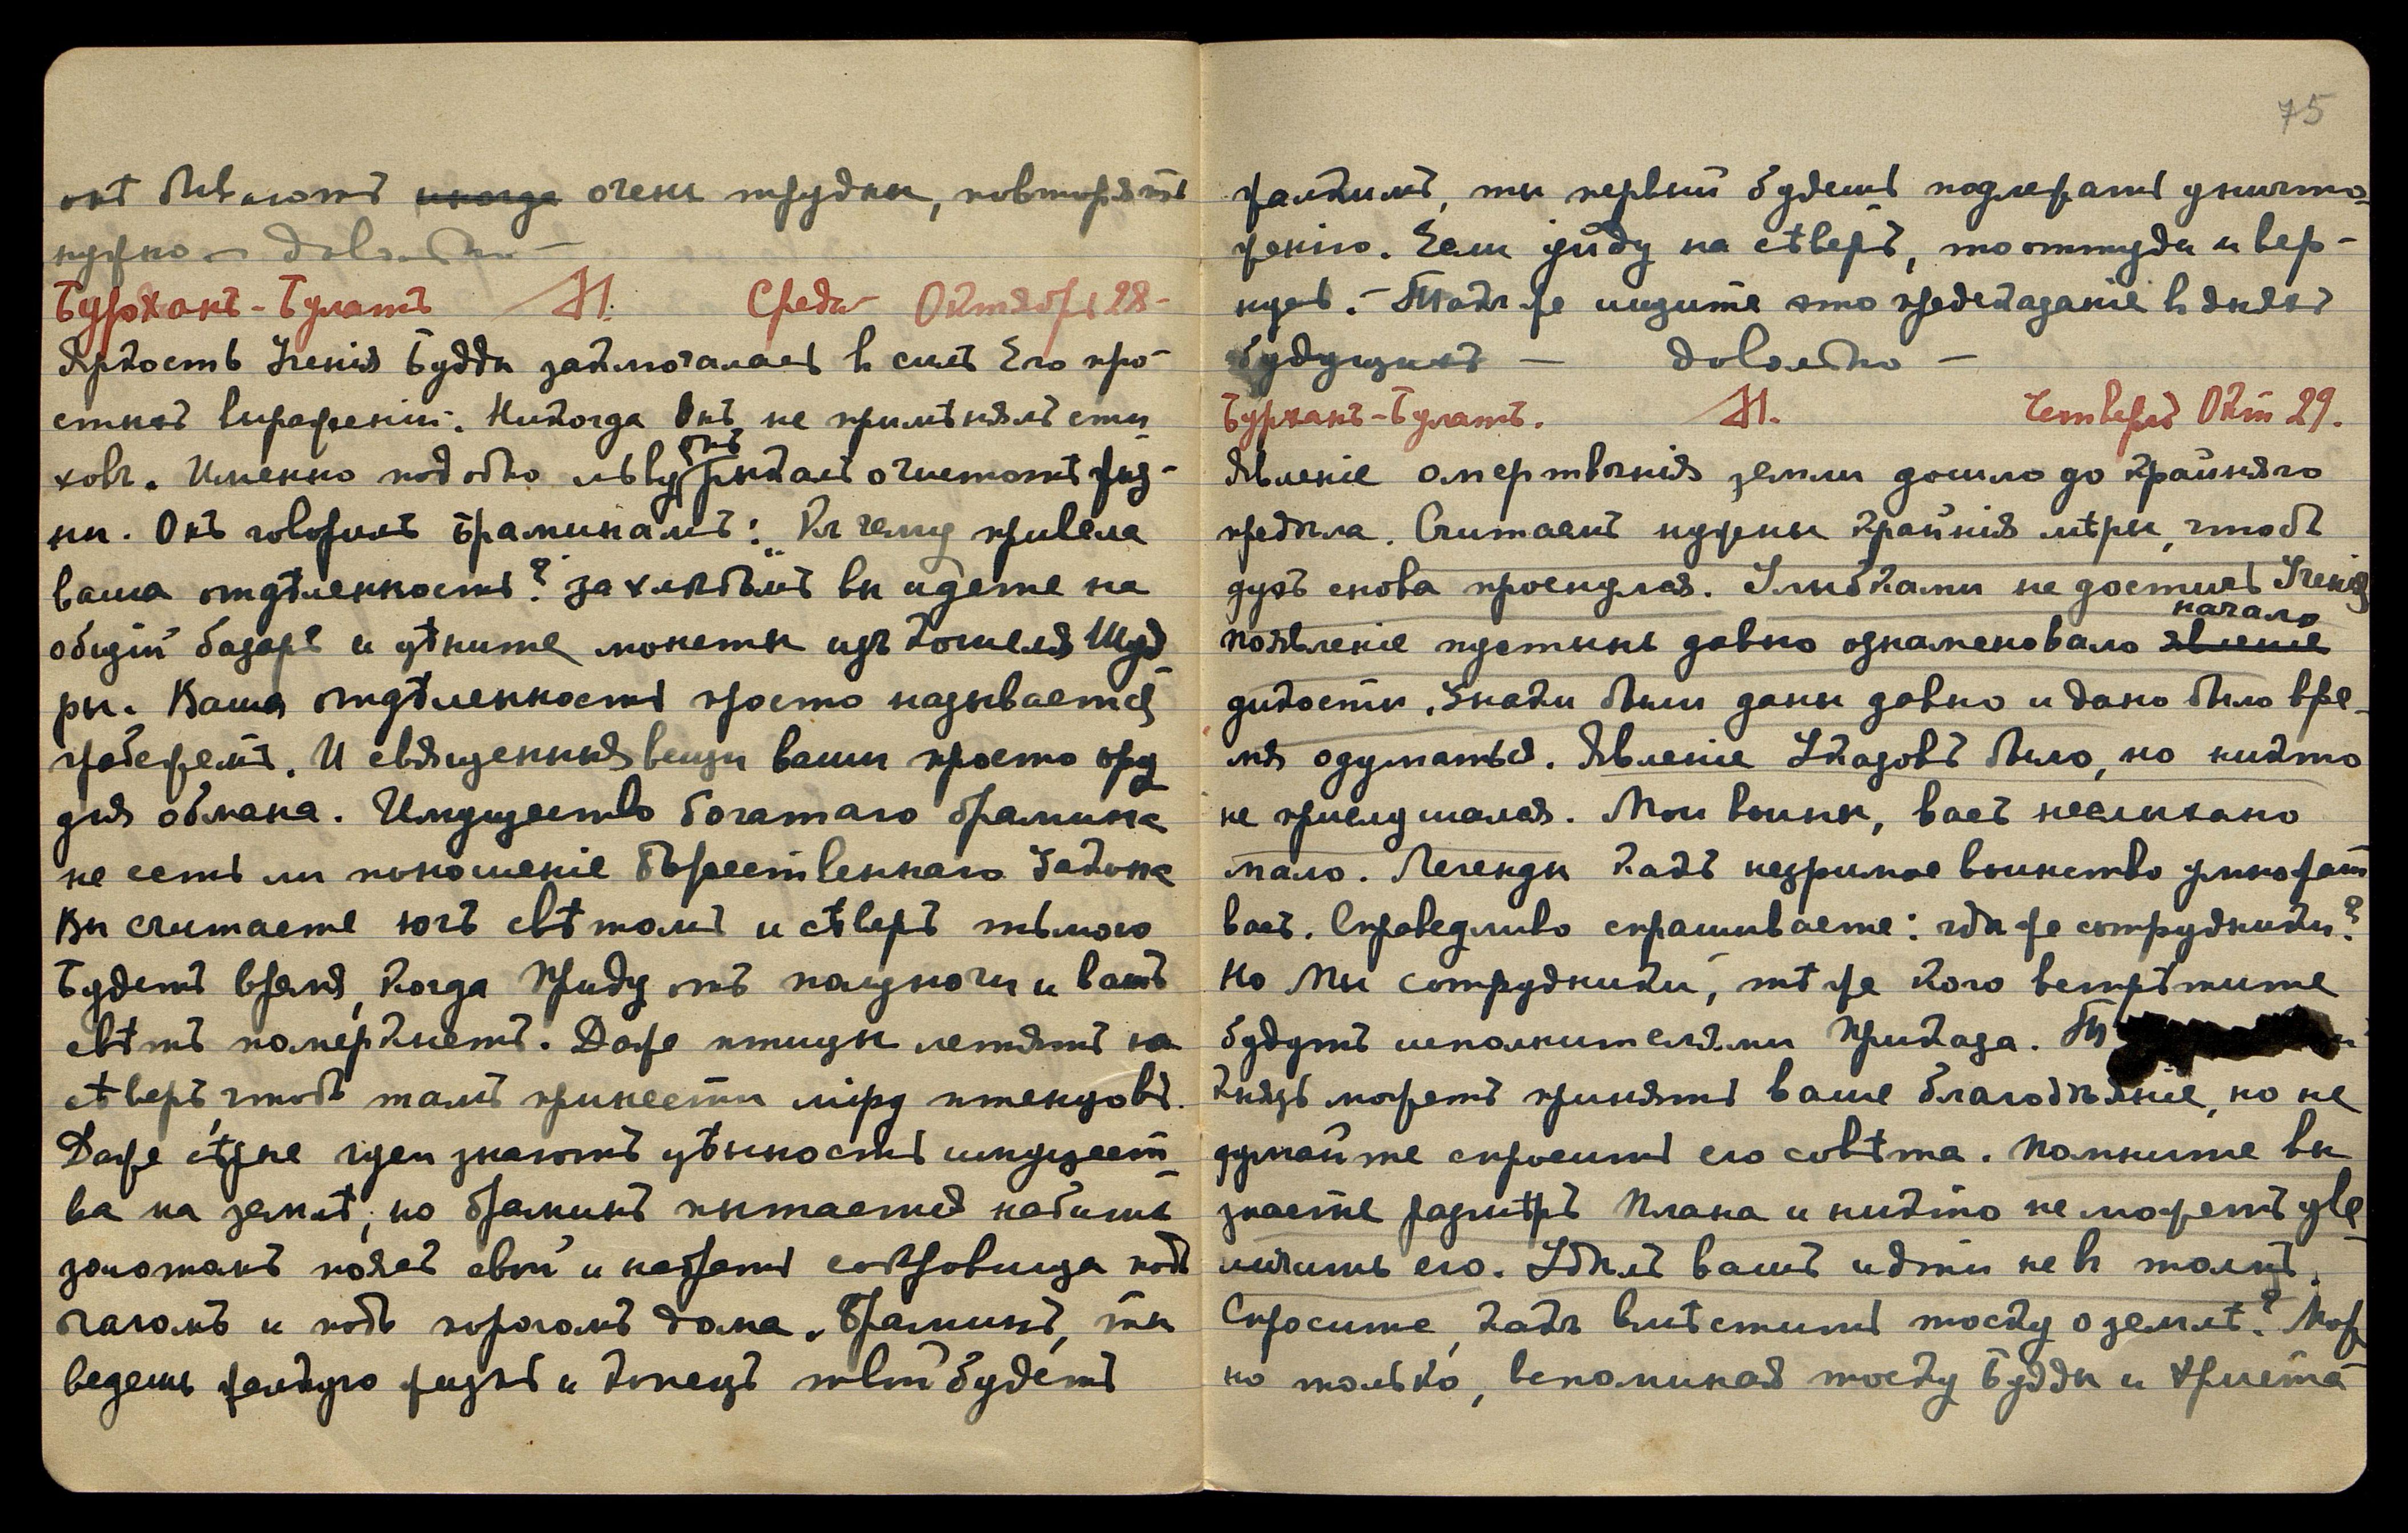 онѣ бываютъ иногда очень трудны, повторять
нужно — довольно —
Бурханъ-Булатъ М. Среда Октябрь 28-
Яркость Ученія Будды заключалась въ силѣ Его про-
стыхъ выраженій. Никогда Онъ не примѣнялъ сти-
ховъ. Именно подобно льву онъ рыкалъ о чистотѣ жиз-
ни. Онъ говорилъ браминамъ: „Къ чему привела
ваша отдѣленность? за хлѣбомъ вы идете на
общій базаръ и цѣните монеты изъ кошеля Шуд-
ры. Ваша отдѣленность просто называется
грабежемъ. И священныя вещи ваши просто ору-
дія обмана. Имущество богатаго брамина
не есть ли поношеніе Божественнаго Закона
Вы считаете югъ свѣтомъ и сѣверъ тьмою
Будетъ время, когда Приду отъ полуночи и вашъ
свѣтъ померкнетъ. Даже птицы летятъ на
сѣверъ, чтобъ тамъ принести міру птенцовъ.
Даже сѣрые гуси знаютъ цѣнность имущест-
ва на землѣ, но браминъ пытается набить
золотомъ поясъ свой и набрать сокровища подъ
очагомъ и подъ порогомъ дома. Браминъ, ты
ведешь жалкую жизнь и конецъ твой будетъ
75
жалкимъ, ты первый будешь подлежать уничто-
женію. Если уйду на сѣверъ, то оттуда и вер-
нусь. — Также ищите это предсказаніе въ дняхъ
будущихъ — довольно —
Бурханъ-Булатъ. М. Четвергъ Окт 29.
Явленіе омертвѣнія земли дошло до крайняго
предѣла. Считаемъ нужны крайнія мѣры, чтобъ
духъ снова проснулся. Улыбками не достичь Ученія
начало
появленіе пустынь давно ознаменовало явленіе
дикости. Знаки были даны давно и дано было вре-
мя одуматься. Явленіе Указовъ было, но никто
не прислушался. Мои воины, васъ неслыхано
мало. Легенды какъ незримое воинство умножатъ
васъ. Справедливо спрашиваете: гдѣ же сотрудники?
Но Мы сотрудники, тѣ же кого встрѣтите
будутъ исполнителями Приказа.
Князь можетъ принять ваше благодѣяніе, но не
думайте спросить его совѣта. Помните вы
знаете размѣръ Плана и никто не можетъ уве-
личить его. Удѣлъ вашъ идти не въ толпѣ.
Спросите, какъ вмѣстить тоску о землѣ? Мож-
но только, вспоминая тоску Будды и Христа